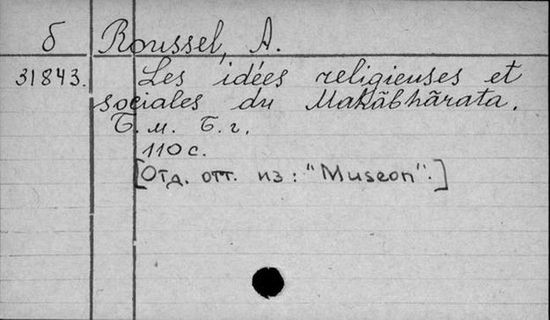 б Roussel, A.
31843. Les idées religieuses et
sociales du Mahãbhãrata.
Б. м. Б. г.
110 с.
[Отд. отт. из: "Museon".]